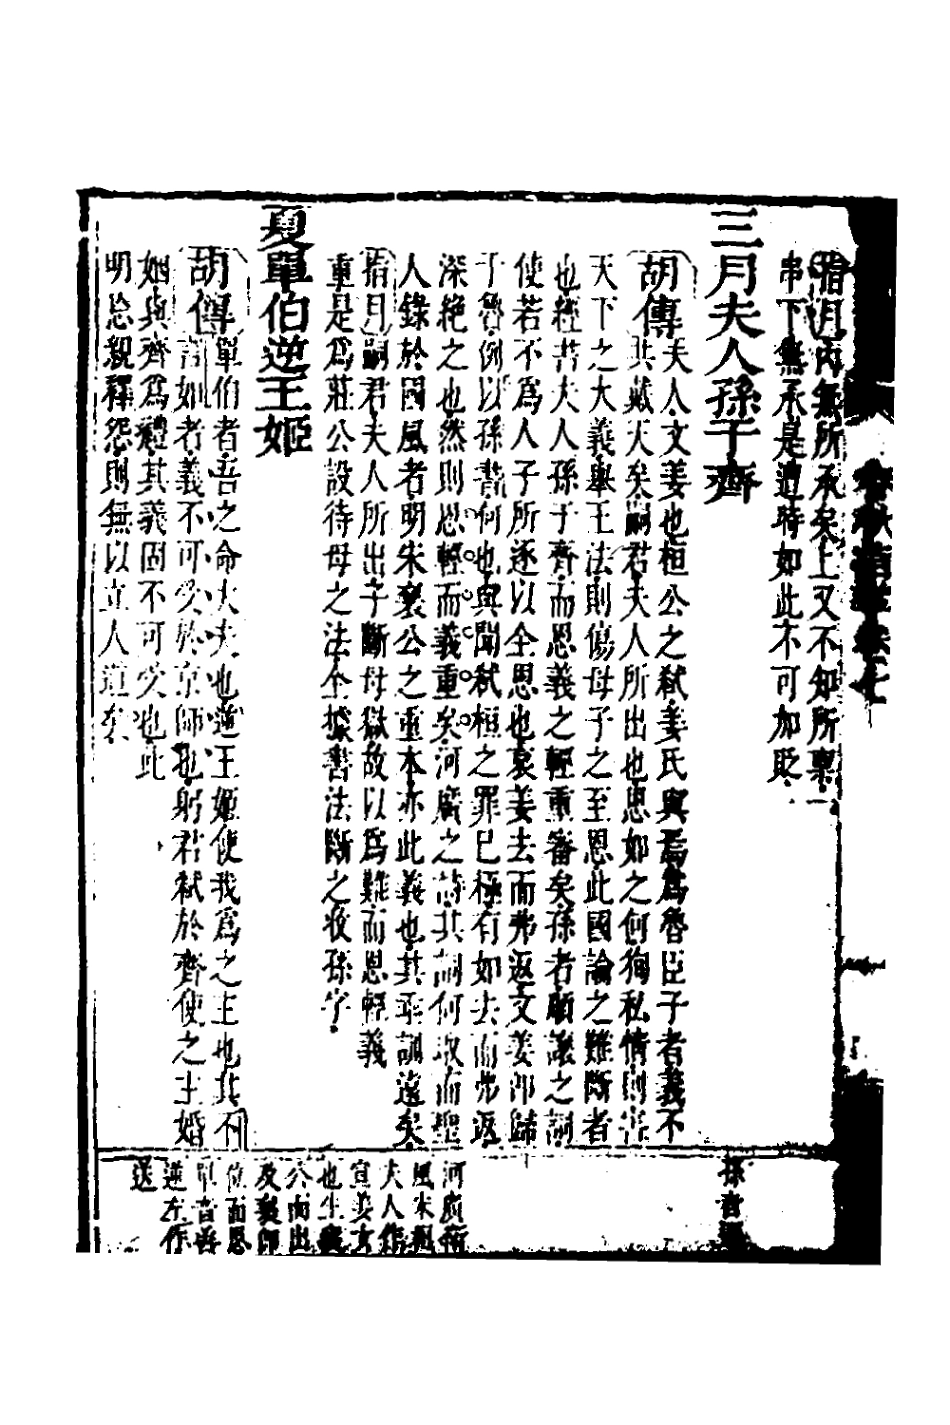 指月內無所承矣上又不知所稟
串下無承是遭時如此不可加貶
三月夫人孫于齊
胡傳夫人文姜也桓公之弑姜氏與焉為魯臣子者義不
共戴天矣嗣君夫人所出也恩如之何徇私情則害
天下之大義舉王法則傷母子之至恩此國論之難斷者
也經書夫人孫于齊而恩義之輕重審矣孫者順讓之詞
使若不為人子所逐以全恩也哀姜去而弗返文姜即歸
于魯例以孫書何也與聞弑桓之罪已極有如去而弗返
深絶之也然則恩輕而義重矣河廣之詩其詞何取而聖
人錄於國風者明宋襄公之重本亦此義也其垂訓遠矣
指月嗣君夫人所出子斷母獄故以為難而恩輕義
重是為莊公設待母之法全據書法斷之收孫字
夏單伯逆王姬
胡傳單伯者吾之命大夫也逆王姬使我為之主也其不
言如者義不可受於京師也躬君弑於齊使之主婚
姻與齊為禮其義固不可受也此
明忘親釋怨則無以立人道矣
孫音
河廣衛
風宋桓
夫人作
宣姜女
也生襄
公而出
及襄卽
位而思
單音善
逆左作
送